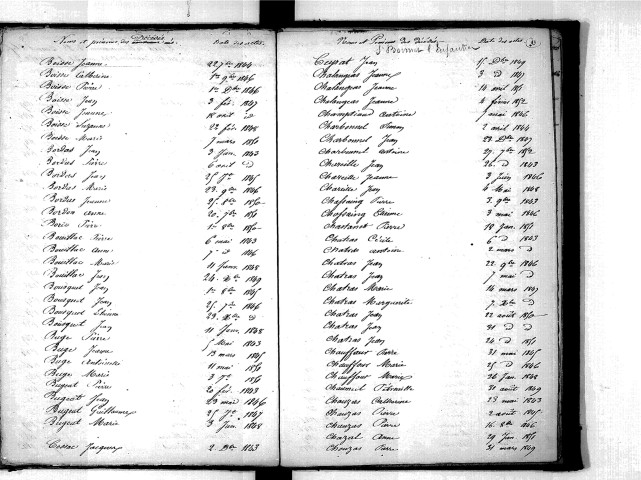 Noms et prénoms des Décédés Date des actes
Boisse Jeanne 22 7bre 1844
Boisse Catherine 1er 9bre 1846
Boisse Pierre 1er Dbre 1846
Boisse Jean 3 fév. 1847
Boisse Jeanne 18 avril d
Boisse Suzanne 22 fév 1848
Boisse Marie 7 mars 1850
Bordas Jean 3 Janv 1843
Bordas Pierre 6 avril d
Bordes Jean 25 7bre 1845
Bordes Marie 23 9bre 1846
Bordes Jeanne 25 8bre 1850
Bordon 20 7bre 1851
Borie Pierre 1er 8bre 1850
Bouillac Pierre 6 mai 1843
Bouillac Anne 7 d 1846
Bouillac Marie 11 Janv 1848
Bouillac Jean 24 Dbre 1849
Bousquet Jean 1er 8bre 1845
Bousquet Jean 25 7bre 1846
Bousquet Etienne 29 Dbre d
Bousquet Jean 11 Janv 1848
Buge Pierre 5 Mai 1843
Buge Jeanne 19 mars 1845
Buge Antoinette 11 mai 1850
Buge Marie 3 7bre 1851
Bugeat Pierre 20 fév 1843
Bugeat Jean 23 mai 1846
Bugeat Guillaume 25 7bre 1847
Bugeat Marie 3 Janv 1848
Cessac Jacques 2 Dbre 1843
Noms et Prénoms des décédés Date des actes
St Bonnet l'Enfantier
Cespat Jean 15 Dbre 1849
Chalangeas Jeanne 3 d 1847
Chalangeas Jeanne 14 avril 1851
Chalangeas Jeanne 4 février 1852
Champtiaud Antoine 7 mai 1846
Charbonnel 2 avril 1844
Charbonnel Jean 23 Dbre 1847
Charbonnel Antoine 27 7bre 1852
Charveille Jean 26 d 1843
Charveille Jeanne 3 Juin 1846
Charveille Jean 4 Mai 1848
Pierre 3 9bre 1843
3 mai 1846
Chastanet Pierre 10 Jan 1851
Chatras Cécile 6 d 1843
Chatras Antoine 2 mars d
Chatras Jean 22 9bre 1846
Chatras Jean 7 mai d
Chatras Marie 14 mars 1847
Chatras Marguerite 7 Dbre d
Chatras Jean 22 août 1850
Chatras Jean 31 d d
Chatras Jean 24 d 1851
Chauffour Pierre 31 mai 1845
Chauffour Marie 25 d 1846
Chauffour Marie 26 Jan 1848
Chaumeil Pétronille 31 août 1849
Chauzas Catherine 23 mai 1843
Chauzas Pierre 2 août 1845
Chauzas Pierre 16 8bre 1846
Chazal Anne 29 Jan 1851
Chouzas Pierre 31 mars 1849